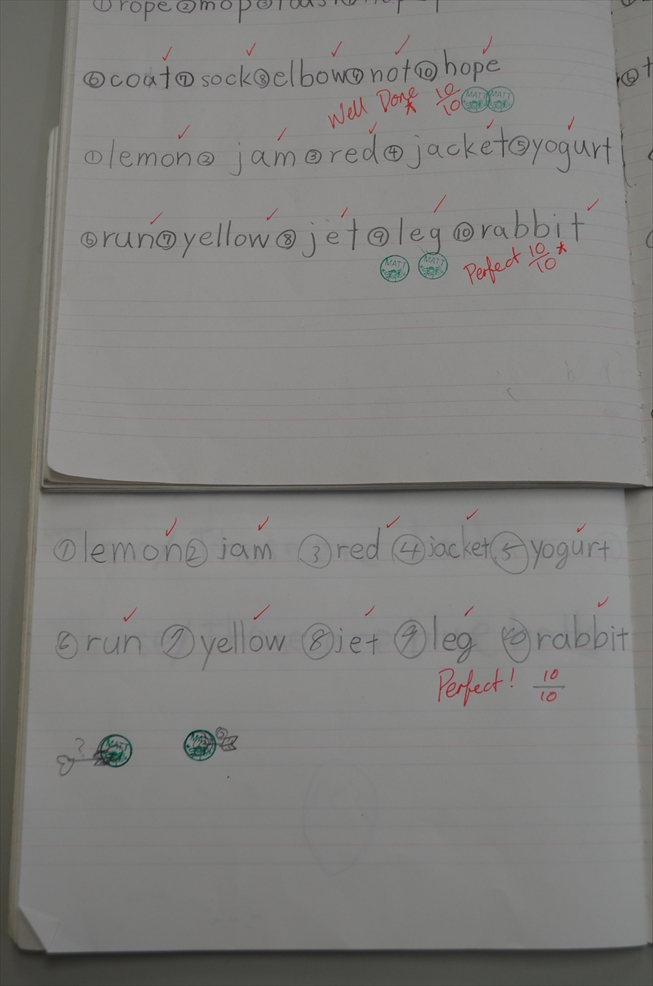 ①rope②mop③
⑥coat⑦sock⑧elbow⑨not⑩hope
Well Done 10/10 MATT MATT
①lemon② jam③red④jacket⑤yogurt
⑥run⑦yellow⑧jet⑨leg⑩rabbit
MATT MATT Perfect 10/10
①lemon② jam ③red ④jacket⑤yogurt
⑥run ⑦yellow ⑧jet ⑨leg ⑩rabbit
Perfect! 10/10
? MATT